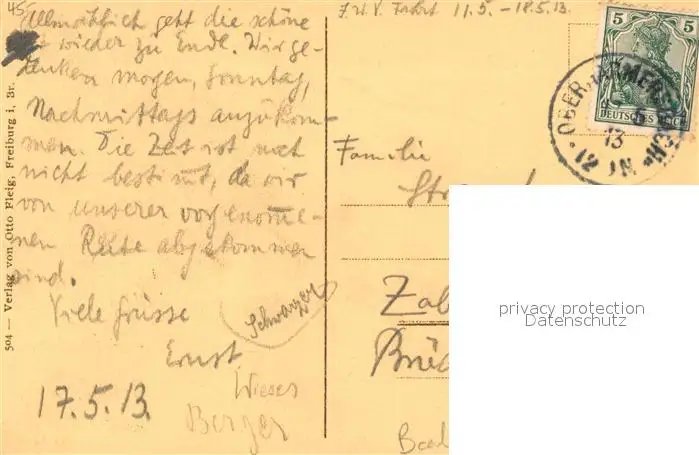 45
Allmählich geht die schöne
wieder zu Ende. Wir ge-
denken morgen, Sonntag,
Nachmittags anzukom-
men. Die Zeit ist noch
nicht bestimmt, da wir
von unserer vorgenomē-
nen Route abgekommen
sind.
Viele Grüsse
Ernst
Schwarzer
Wieser
Berger
17.5.13.
504 — Verlag von Otto Fleig, Freiburg i. Br.
Fahrt 11.5. - 18.5.13.
5 5
DEUTSCHES REICH
OBER
13
12
Familie
Zabl
Brü
privacy protection
Datenschutz